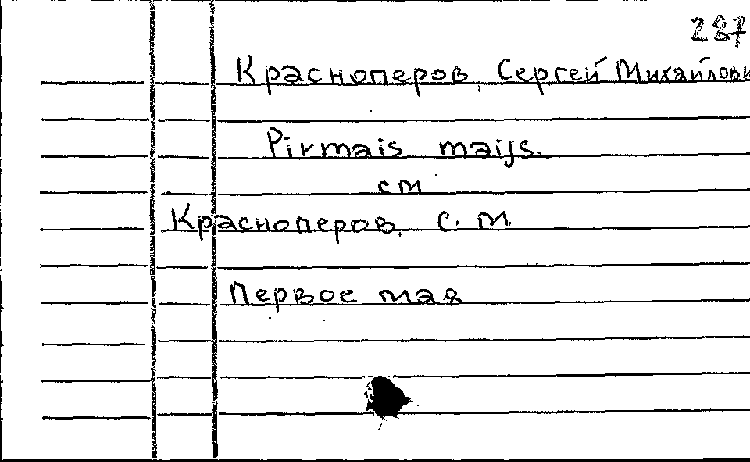 287
Красноперов, Сергей Михайлови
Pirmais maijs.
см
Красноперов, С. М.
Первое мая